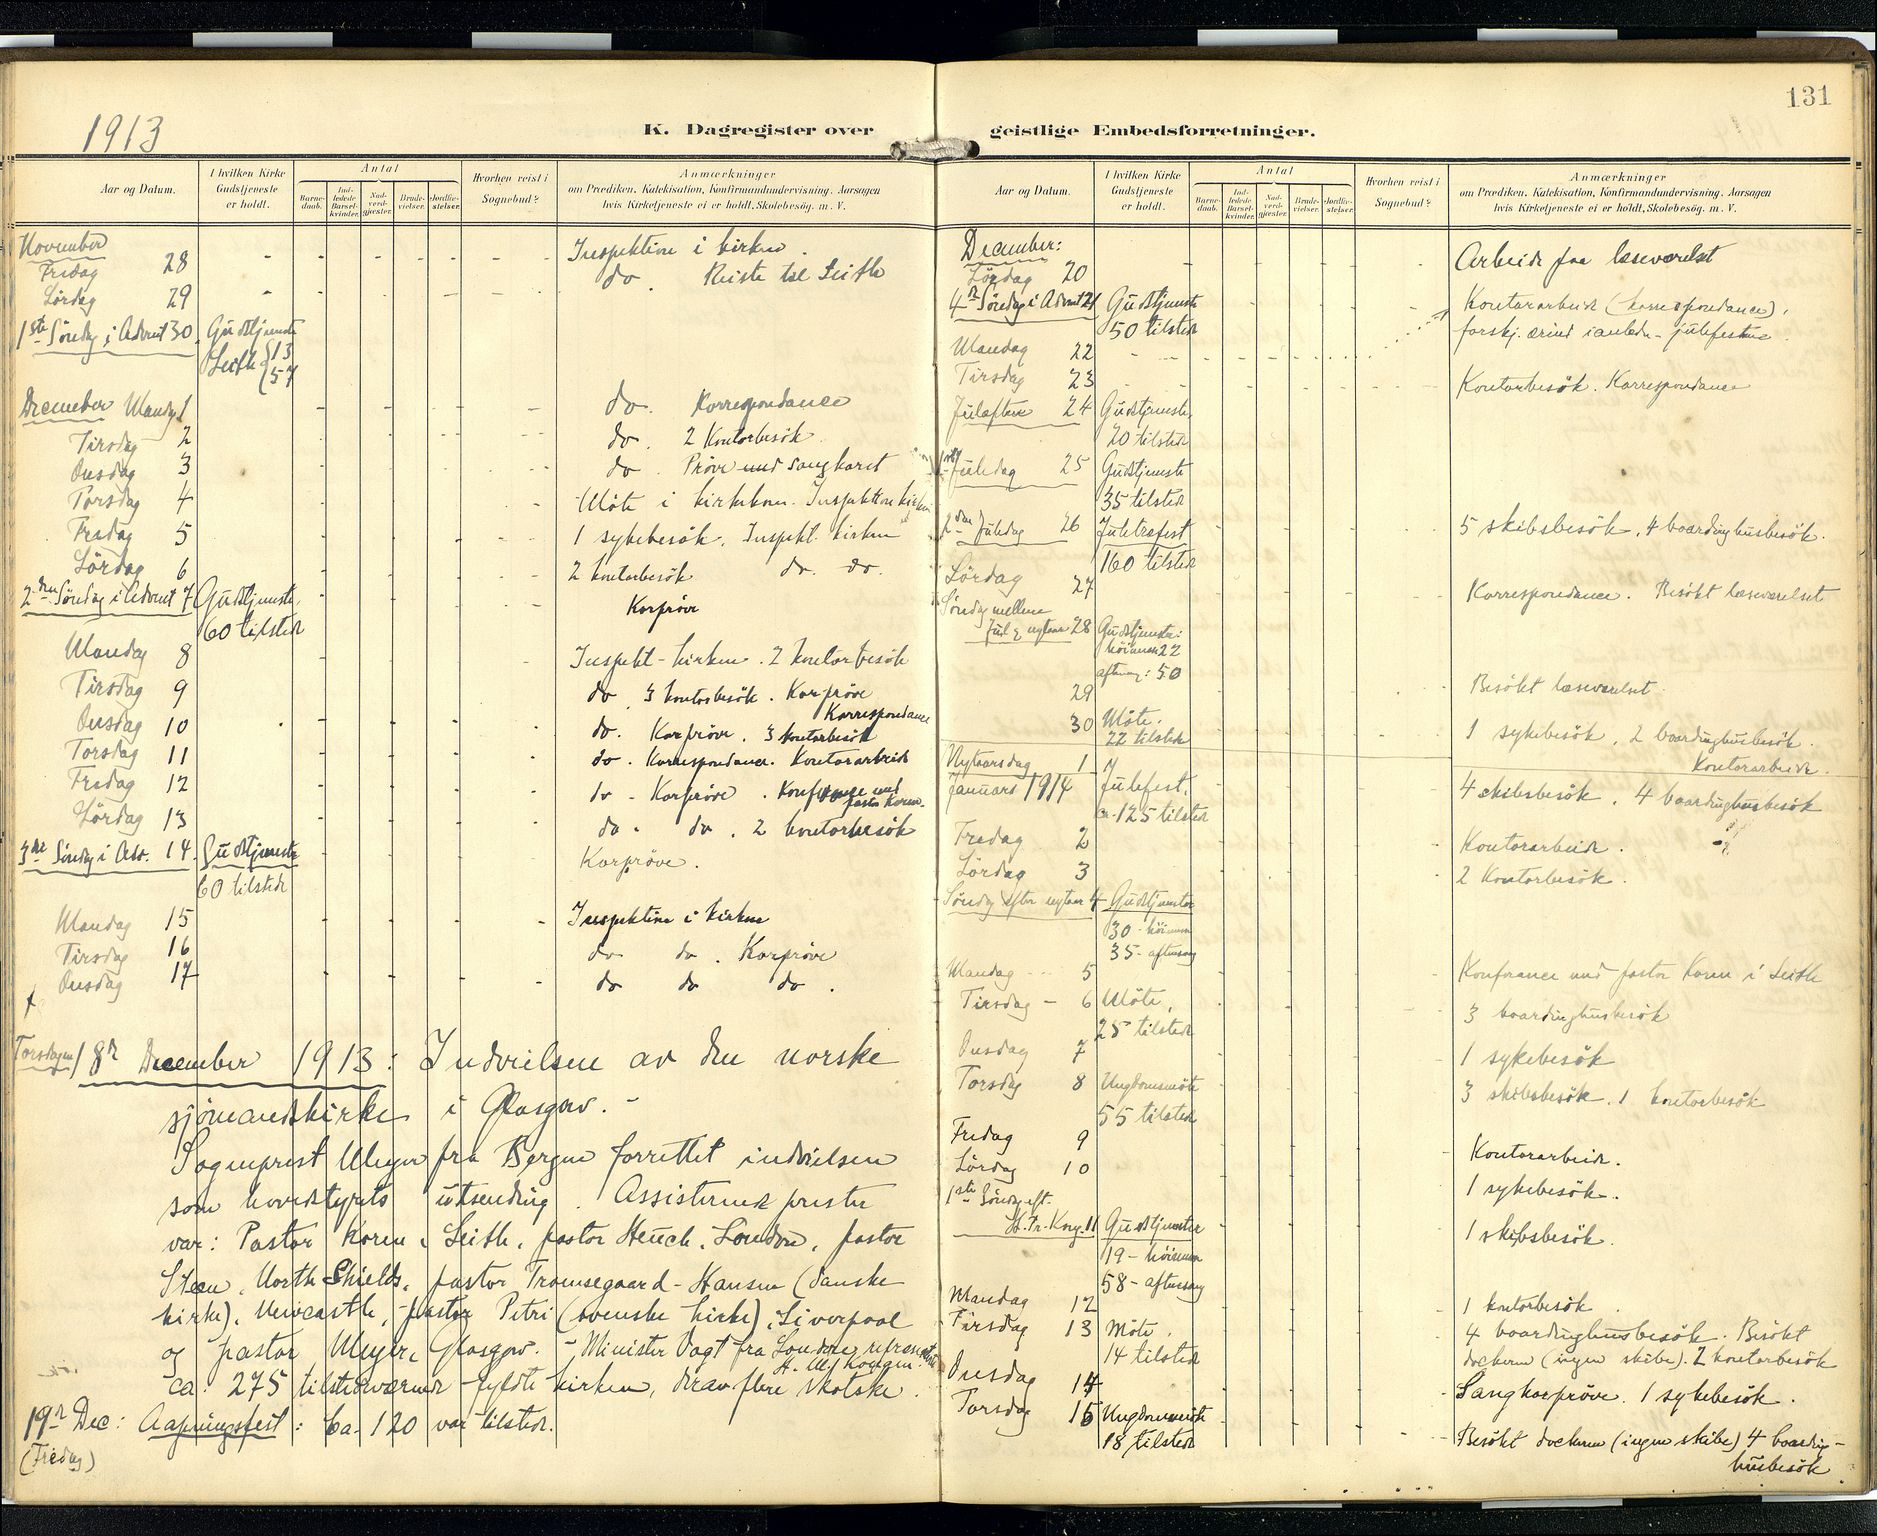 1913
K. Dagregister over
Aar og Datum.
I hvilken Kirke Gudstjeneste er holdt.
Antal
Barnedaab.
Indledede Barselkvinder.
Nadverdgjæster.
Brudevielser.
Jordfæstelser.
Hvorhen reist i Sognebud?
Anmærkninger
om Prædiken, Katekisation, Konfirmandundervisning, Aarsagen
hvis Kirketjeneste ei er holdt, Skolebesøg. m. V.
November
Fredag 28 Inspektion i kirken.
Lördag 29 do. Reiste til Leith
1ste Söndag i Advent 30. Gudstjeneste
Leith 13
57
December Mandag 1 do. Korrespondance
Tirsdag 2 do. 2 Kontorbesök
Onsdag 3 do. Pröve med sangkoret
Torsdag 4 Möte i kirkekom. Inspektion kirken
Fredag 5 1 sykebesök. Inspekt. kirken
Lördag 6 2 kontorbesök do. do.
2den Söndag i Advent 7 Gudstjeneste. Korpröve
60 tilstede
Mandag 8 Inspekt- kirken. 2 kontorbesök
Tirsdag 9 do. 3 kontorbesök. Korpröve
Korrespondance
Onsdag 10 do. Korpröve. 3 kontorbesök
Torsdag 11 do. Korrespondance. Kontorarbeide
Fredag 12 do - Korpröve. Konferanse med pastor Koren.
Lördag 13 do. do. 2 kontorbesök
3die Söndag i Adv. 14. Gudstjeneste Korpröve.
60 tilstede
Mandag 15 Inspektion i kirken
Tirsdag 16 do do. Korpröve
Onsdag 17 do do do.
Torsdagen 18de December 1913: Indvielsen av den norske
sjömandskirke i Glasgow. -
Sogneprest Meyer fra Bergen forrettet indvielsen
som hovedstyrets utsending. Assisterende prester
var: Pastor Koren, Leith, pastor Heuch, London, pastor
Steen, North Shields, pastor Tromsegaard-Hansen (danske
kirke), Newcastle, pastor Petri (svenske kirke), Liverpool
og pastor Meyer, Glasgow. - Minister Vogt fra London repræsenterte
H. M. Kongen.
ca: 275 tilstedeværende - fyldte kirken, derav flere skotske.
19de Dec: Aapningsfest: Ca 120 var tilstede.
(Fredag)
131
geistlige Embedsforretninger.
Aar og Datum.
I hvilken Kirke Gudstjeneste er holdt.
Antal
Barnedaab.
Indledede Barselkvinder.
Nadverdgjæster.
Brudevielser.
Jordfæstelser.
Hvorhen reist i Sognebud?
Anmærkninger
om Prædiken, Katekisation, Konfirmandundervisning, Aarsagen
hvis Kirketjeneste ei er holdt, Skolebesøg. m. V.
December:
Lördag 20 Arbeide paa læseværelset
4de Söndag i Advent 21 Gudstjeneste Kontorarbeide (korrespondance),
50 tilstede forskj. ærind i anledn- julefestene.
Mandag 22
Tirsdag 23 Kontorbesök. Korrespondance
Juleaften 24 Gudstjeneste.
20 tilstede
1ste Juledag 25 Gudstjeneste
35 tilstede
2den Juledag 26 Juletræfest 5 skibsbesök, 4 boardinghusbesök.
160 tilstede
Lördag 27 Korrespondance. Besökt læseværelset
Söndag mellem
Jul & nytaar 28 Gudstjenester:
höimesse 22
aftensang: 50
29 Besökt læseværelset.
30 Möte. 1 sykebesök, 2 boardinghusbesök.
22 tilstede Kontorarbeide.
Nytaarsdag 1
Januar 1914 Julefest. 4 skibsbesök, 4 boardinghusbesök
ca. 125 tilstede
Fredag 2 Kontorarbeide.
Lördag 3 2 Kontorbesök.
Söndag efter nytaar 4 Gudstjenester
30 - höimesse
35 - aftensang
Mandag 5 Konferance med pastor Koren i Leith
Tirsdag - 6 Möte. 3 boardinghusbesök
25 tilstede
Onsdag 7 1 sykebesök
Torsdag 8 Ungdomsmöte 3 skibsbesök, 1 kontorbesök
55 tilstede
Fredag 9 Kontorarbeide.
Lördag 10 1 sykebesök.
1ste Söndag eft.
H. Tr. Kong. 11 Gudstjenester 1 skibsbesök.
19 - höimesse
58 - aftensang
Mandag 12 1 kontorbesök.
Tirsdag 13 Möte. 4 boardinghusbesök. Besökt
14 tilstede dockerne (ingen skibe). 2 kontorbesök
Onsdag 14 Sangkorpröve. 1 sykebesök.
Torsdag 15 Ungdomsmöte
18 tilstede Besökt dockerne (ingen skibe) 4 boarding-
husbesök